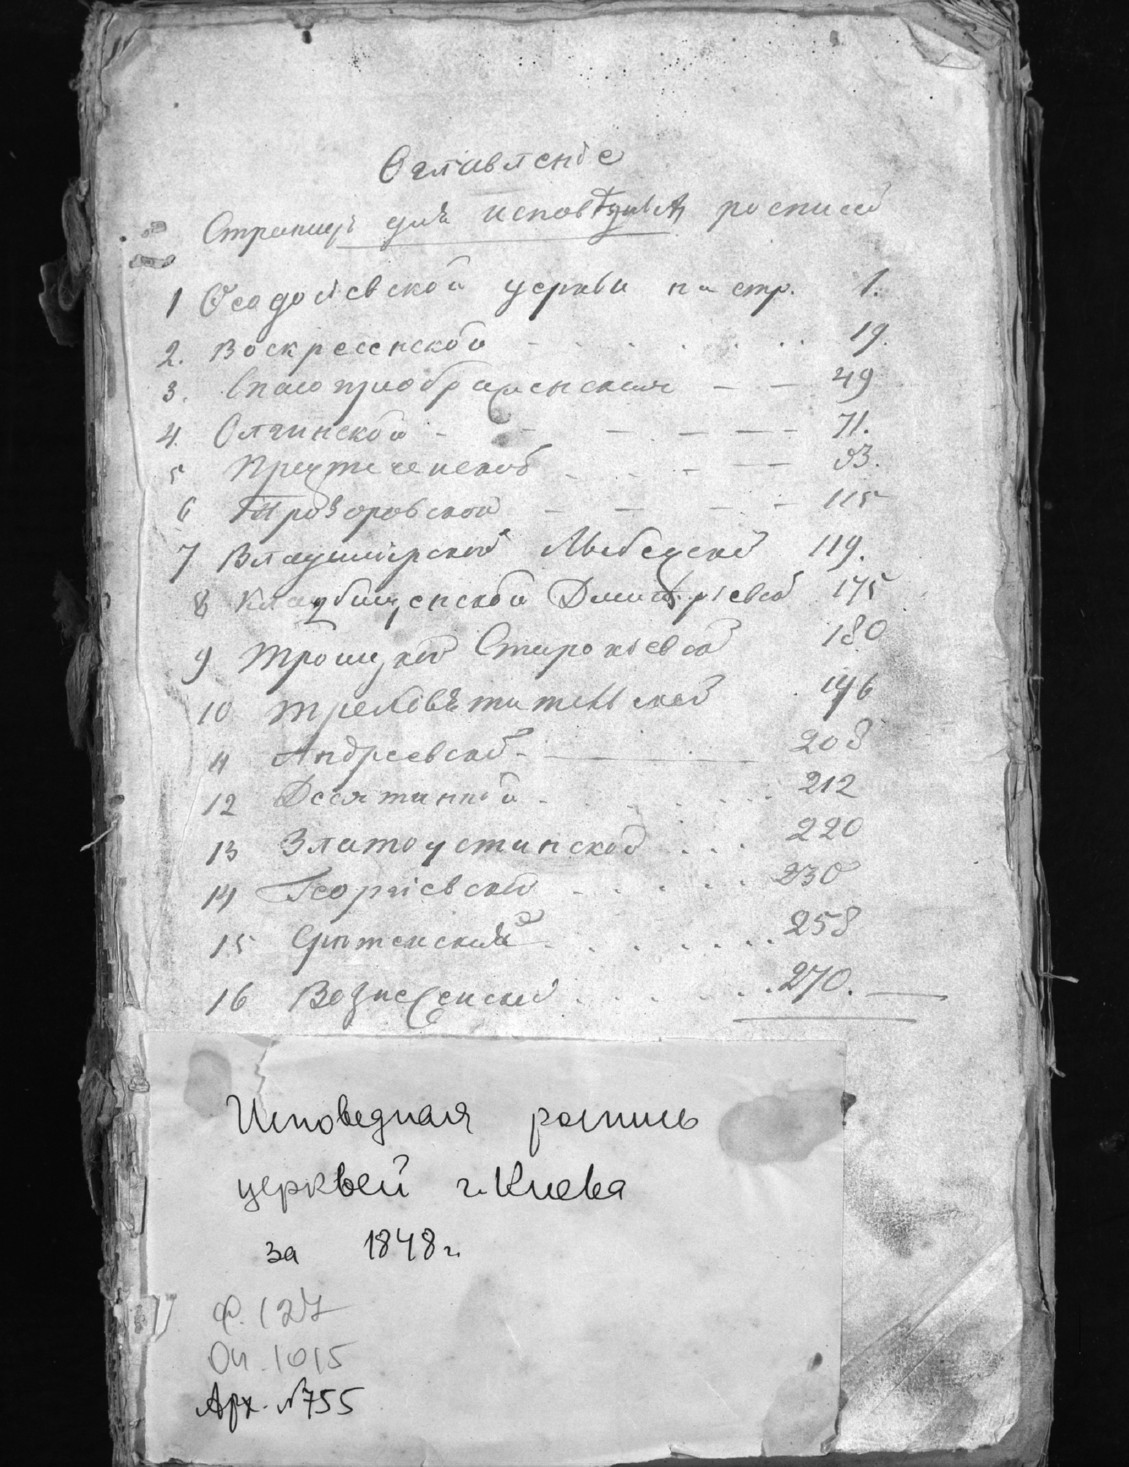 Оглавленіе
Страницъ для исповѣдныхъ росписей
1 Ѳеодосіевской церкви на стр. 1.
2. Воскресенской 19.
3. Спасопреображенская 49
4. Олгинской 71.
5 Предтеченской 93.
6 Прозоровской 115
7 Владимірской Лыбедской 119.
8 Кладбищенской Димитріевской 175
9 Троицкой Старокіевской 180
10 Трехсвѣтительской 196
11 Андреевской 208
12 Десятинной 212
13 Златоустинской 220
14 Георгіевской 230
15 Срѣтенской 258
16 Вознесенской 270.
Исповедная роспись
церквей г. Киева
за 1848 г.
Ф. 127
Оп. 1015
Арх. №755